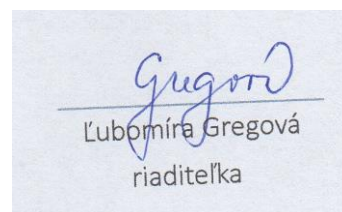 Gregová
Ľubomíra Gregová
riaditeľka